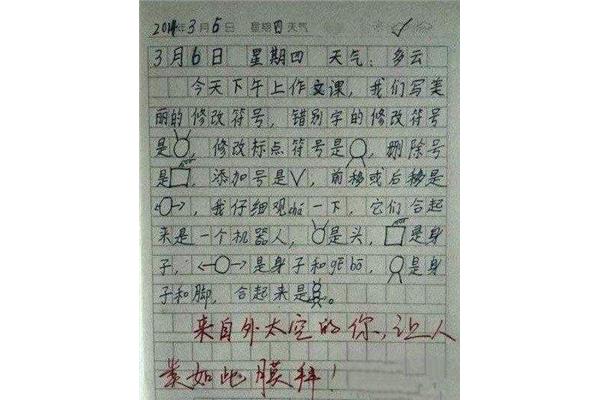 2014年3月6日 星期四 天气
3月6日 星期四 天气：多云
今天下午上作文课，我们写美
丽的修改符号，错别字的修改符号
是，修改标点符号是，删除号
是，添加号是V，前移或后移是
，我仔细观chá一下，它们合起
来是一个机器人，是头，是身
子，是身子和gēbō，是身
子和脚，合起来是。
来自外太空的你，让人
类如此膜拜！